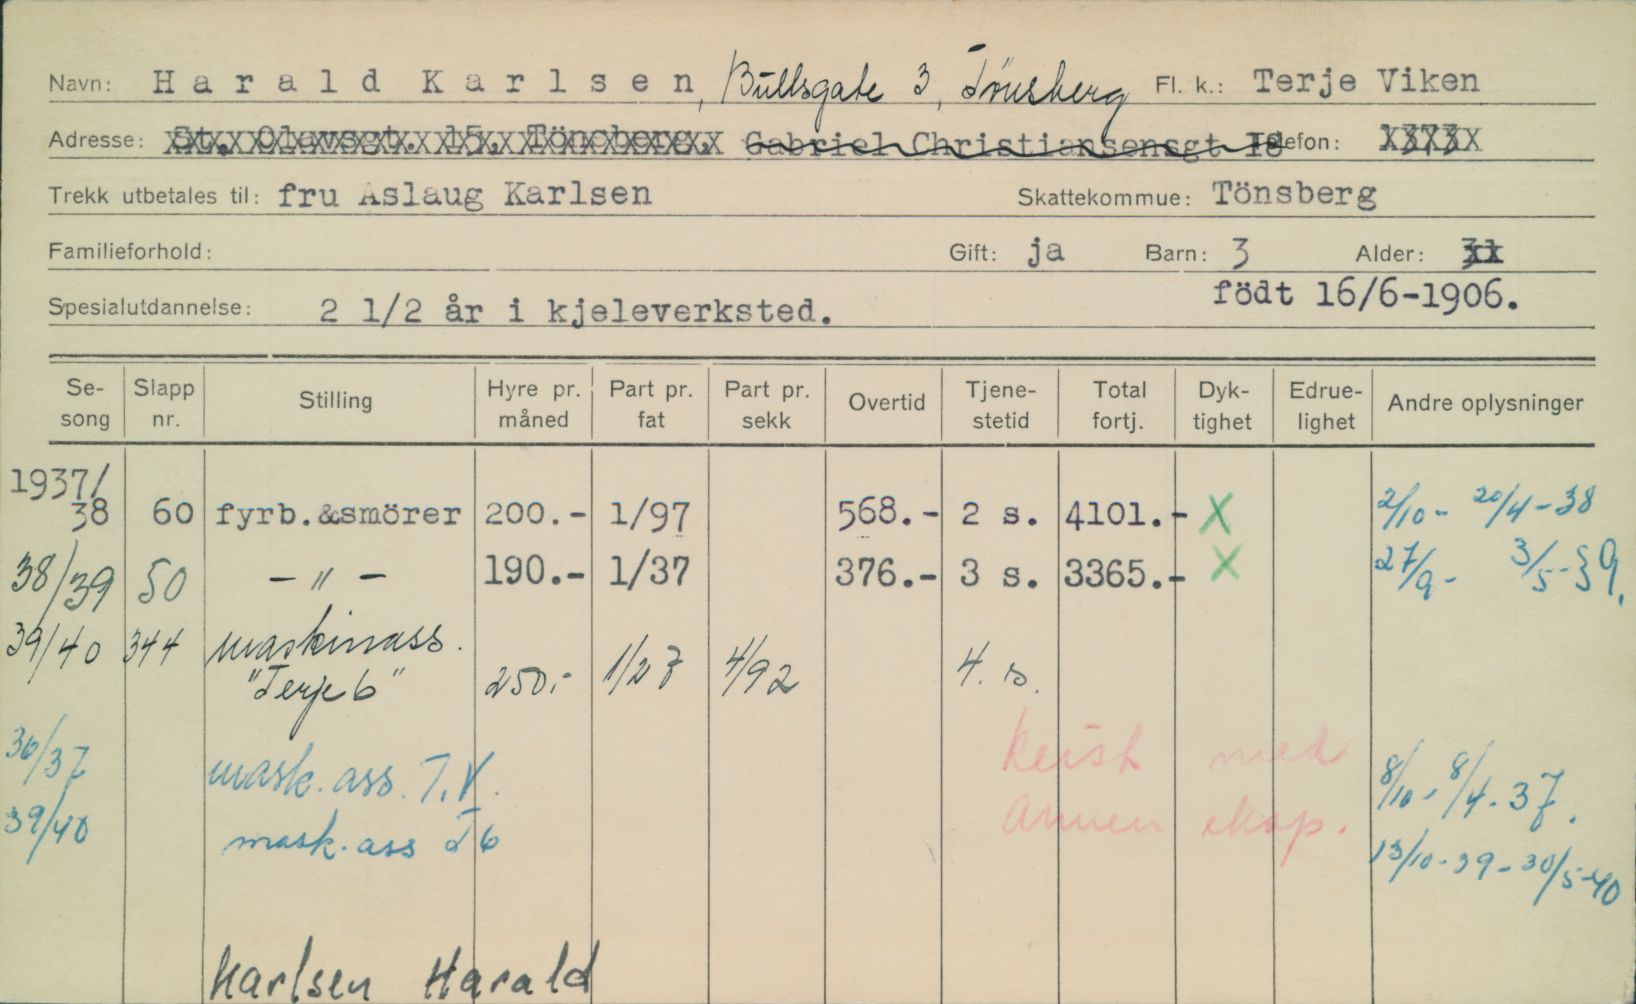 Navn: Harald Karlsen, Bullsgate 3, Tönsberg Fl. k.: Terje Viken
Adresse: St. Olavsgt. 15, Tönsberg. Gabriel Christiansensgt 18 Telefon: 1373
Trekk utbetales til: fru Aslaug Karlsen Skattekommue: Tönsberg
Familieforhold: Gift: ja Barn: 3 Alder: 31
Spesialutdannelse: 2 1/2 år i kjeleverksted. födt 16/6-1906.
Se-song Slapp nr. Stilling Hyre pr. måned Part pr. fat Part pr. sekk Overtid Tjene-stetid Total fortj. Dyk-tighet Edrue-lighet Andre oplysninger
1937/
38 60 fyrb.&smörer 200.- 1/97 568.- 2 s. 4101.- X 2/10 - 20/4-38
38/39 50 -"- 190.- 1/37 376.- 3 s. 3365.- X 27/9 - 3/5-39.
39/40 344 maskinass.
"Terje 6" 250.- 1/27 4/92 4. s.
36/37 mask. ass. T.V. Reist med 8/10 - 8/4-37.
39/40 mask. ass T 6 annen eksp. 13/10-39-30/5-40
Karlsen Harald